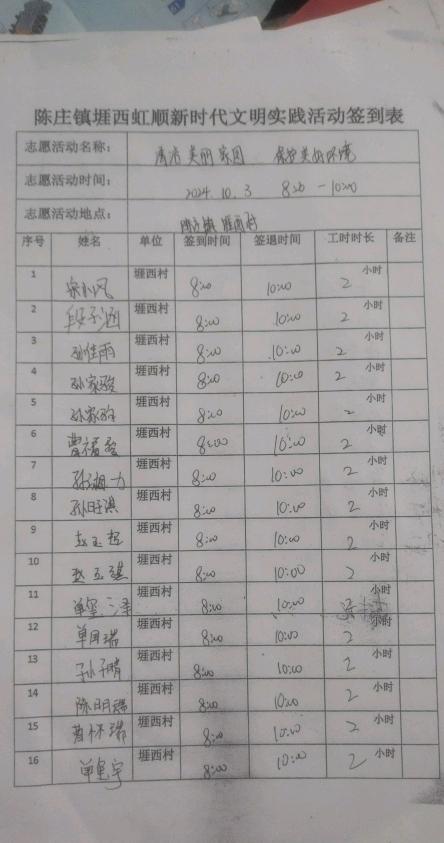 陈庄镇堐西虹顺新时代文明实践活动签到表
志愿活动名称： 清洁美丽家园 保护美好环境
志愿活动时间： 2024.10.3 8:00-10:00
志愿活动地点： 陈庄镇堐西村
序号 姓名 单位 签到时间 签退时间 工时时长 备注
1 堐西村 8:00 10:00 2 小时
2 段子涵 堐西村 8:00 10:00 2 小时
3 孙佳雨 堐西村 8:00 10:00 2 小时
4 孙家骏 堐西村 8:00 10:00 2 小时
5 孙家 堐西村 8:00 10:00 2 小时
6 曹 堐西村 8:00 10:00 2 小时
7 孙 力 堐西村 8:00 10:00 2 小时
8 孙 淇 堐西村 8:00 10:00 2 小时
9 赵 堐西村 8:00 10:00 2 小时
10 赵玉 堐西村 8:00 10:00 2 小时
11 单 堐西村 8:00 10:00 小时
12 单 瑞 堐西村 8:00 10:00 2 小时
13 孙子晴 堐西村 8:00 10:00 2 小时
14 陈明瑞 堐西村 8:00 10:00 2 小时
15 曹怀瑞 堐西村 8:00 10:00 2 小时
16 单 宇 堐西村 8:00 10:00 2 小时